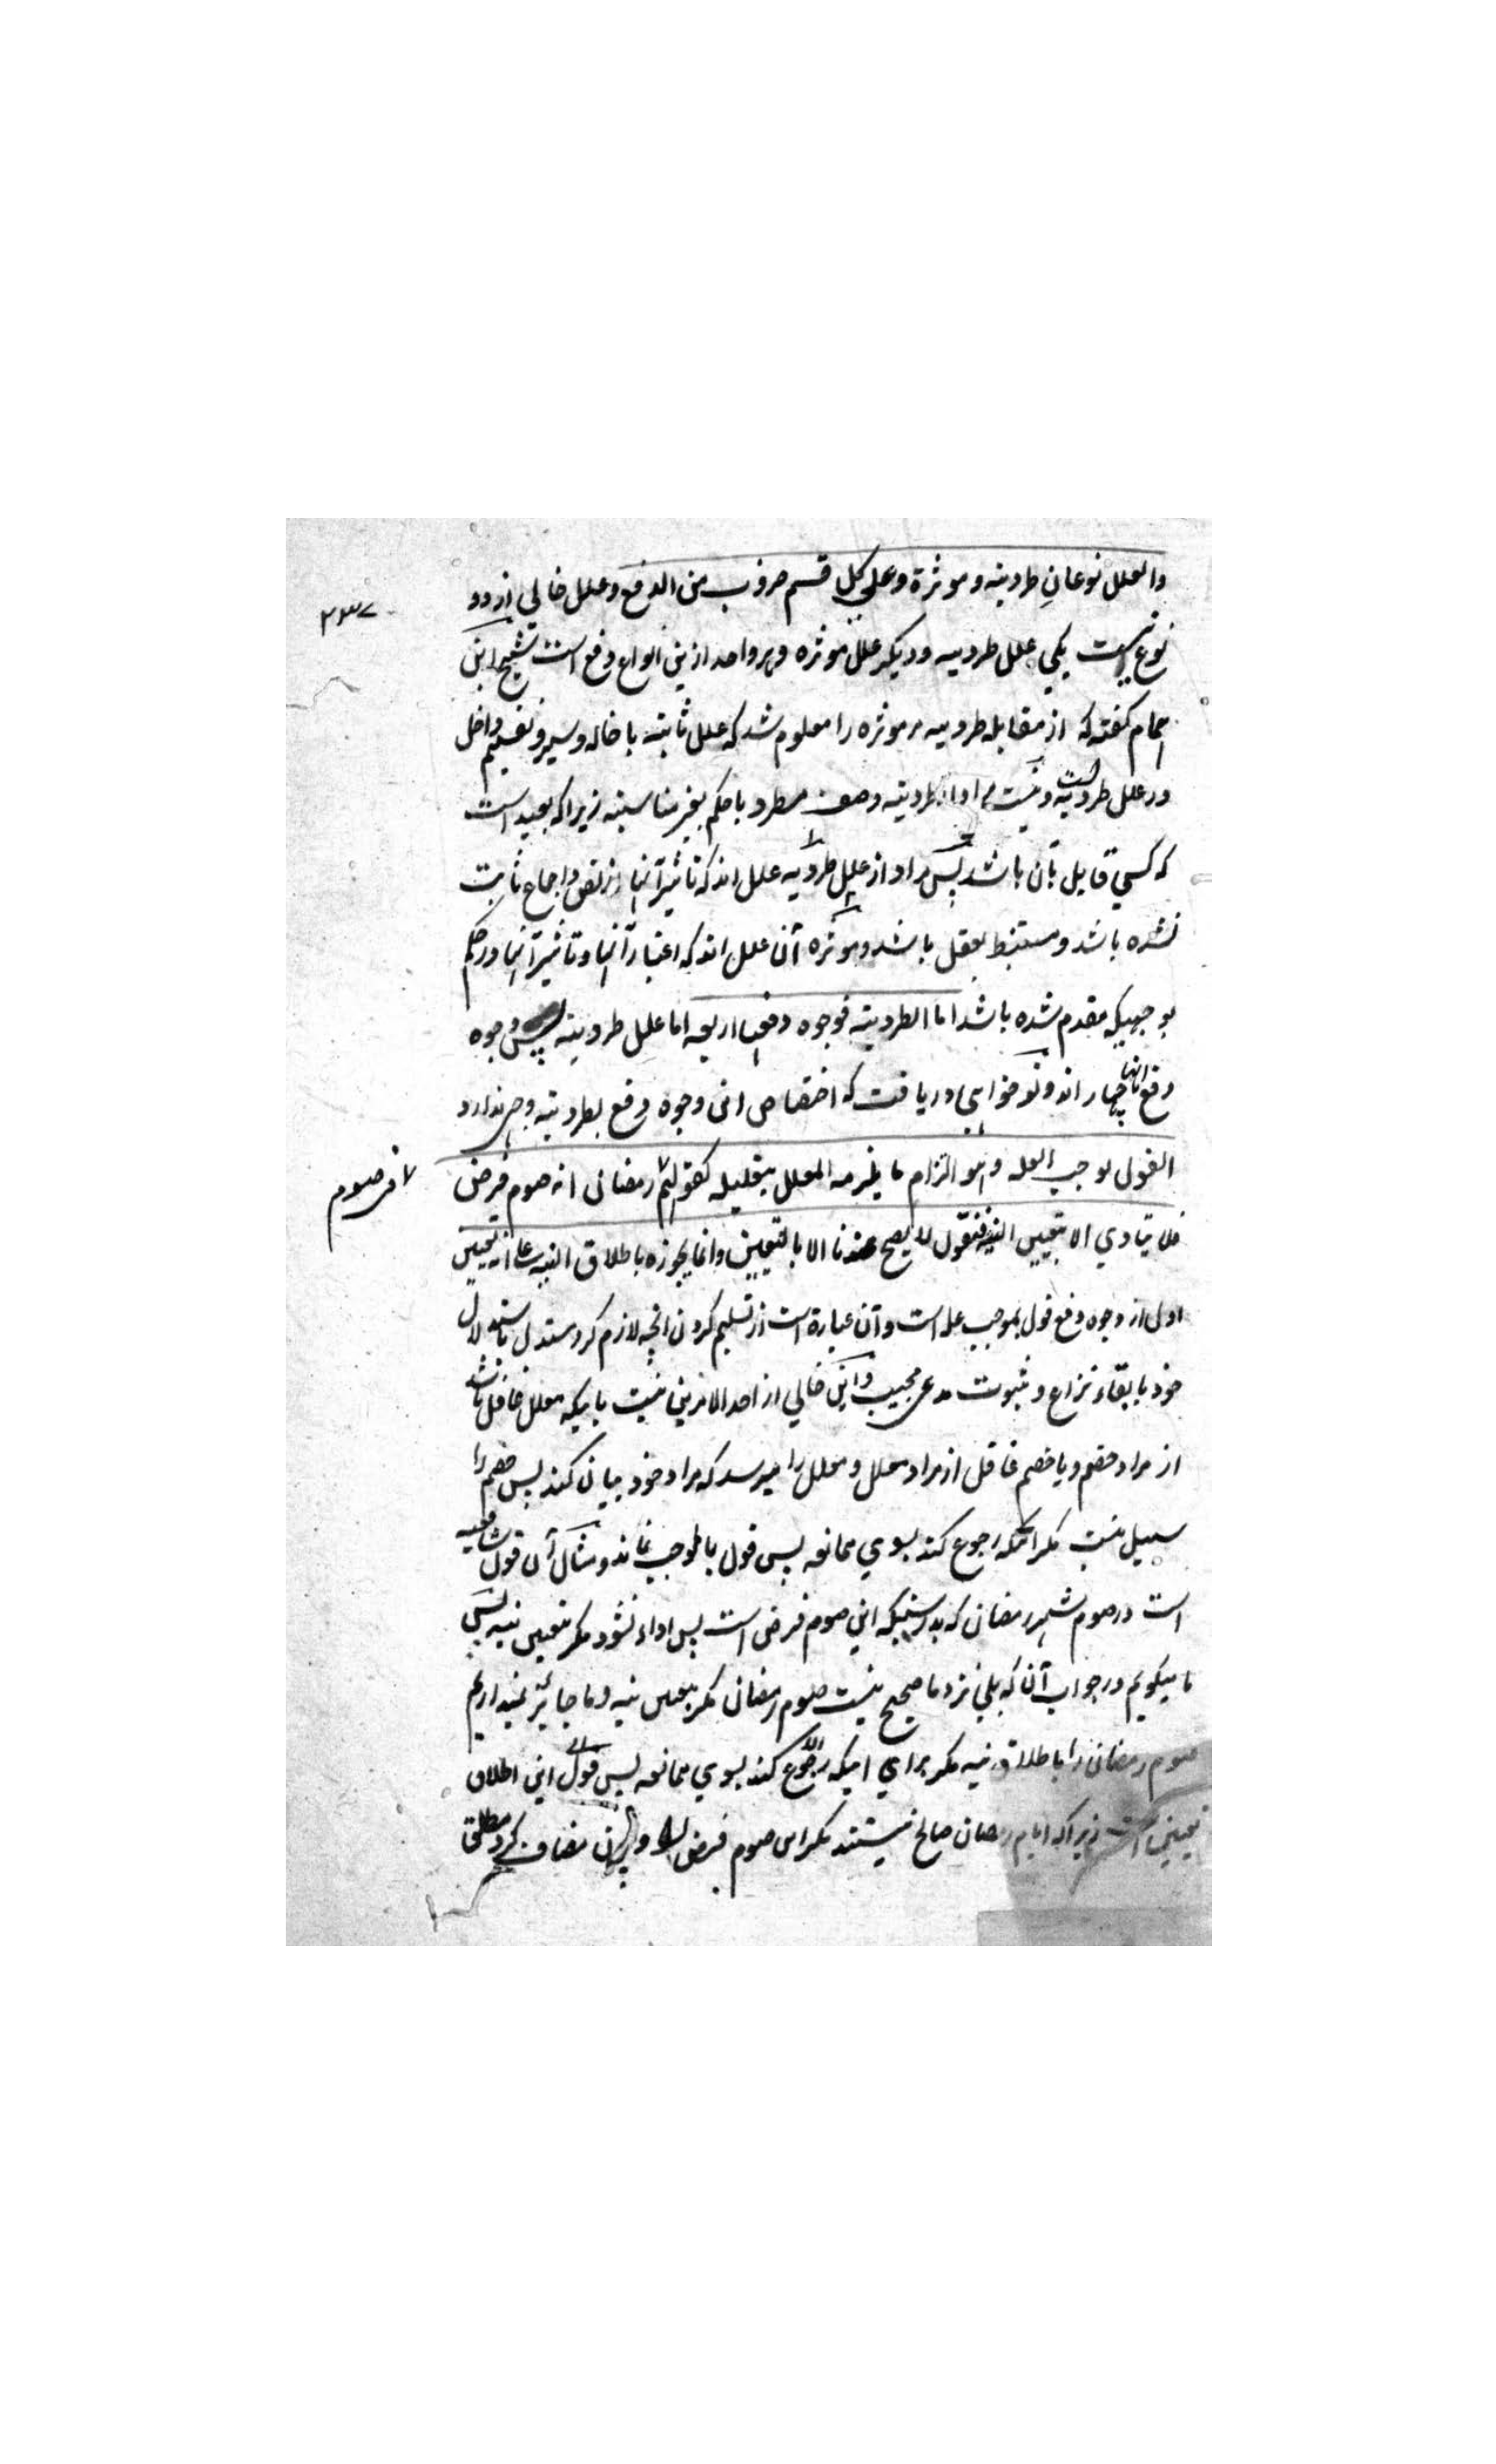 والعلل نوعان طردیته وموثرة وعلی کل قسم ضروب من الدفع وعلل خالی از دو
۲۳۷
نوع نیست یکی علل طردیه ودیکر علل موثره وبر واحد ازین انواع دفع است شیخ ابن
همام کفته که از مقابله طردیه بر موثره را معلوم شد که علل ثابته باخاله وسبر وتقسیم داخل
در علل طردیه است ونیست مراد از طردیته وصف مطرد با حکم بغیر مناسبته زیرا که بعید است
که کسی قایل بآن باشد پس مراد از علل طردیه علل اند که تاثیر آنها از نص واجماع ثابت
نشده باشد ومستنبط بعقل باشد وموثره آن علل اند که اعتبار آنها وتاثیر آنها در حکم
بوجهیکه مقدم شده باشد اما الطردیته فوجوه دفعها اربعه اما علل طردیته پس وجوه
دفع آنها چهار اند وتو خواهی دریافت که اختصاص این وجوه دفع بطردیته وجهی ندارد
القول بموجب العله وهو التزام ما یلزمه المعلل بتعلیله کقولهم رمضان انه صوم فرض
فی صوم
فلا یتادی الا بتعیین النیه فنقول لا یصح عندنا الا بالتعیین وانما یجوزه باطلاق النیه علی انه تعیین
اول از وجوه دفع قول بموجب عله است وآن عبارة است از تسلیم کردن آنچه لازم کرد مستدل باستدلال
خود با بقاء نزاع وثبوت مدعی مجیب واین خالی از احد الامرین نیست یا بیکه معلل غافل باشد
از مراد خصم ویا خصم غافل از مراد معلل ومعلل را میرسد که مراد خود بیان کند پس خصم را
سبیل نیست مکر آنکه رجوع کند بسوی ممانعه پس قول بالموجب نماند ومثال آن قول شافعیه
است در صوم شهر رمضان که بدرستیکه این صوم فرض است پس اداء نشود مکر بتعیین نیه پس
ما میکویم در جواب آن که بلی نزد ما صحیح نیست صوم رمضان مکر بتعیین نیه وما جائز نمیداریم
صوم رمضان را باطلاق نیه مکر برای اینکه رجوع کند بسوی ممانعه پس قول این اطلاق
تعیین است زیرا که ایام رمضان صالح نیستند مکر این صوم فرض را مضاف کرد مطلق